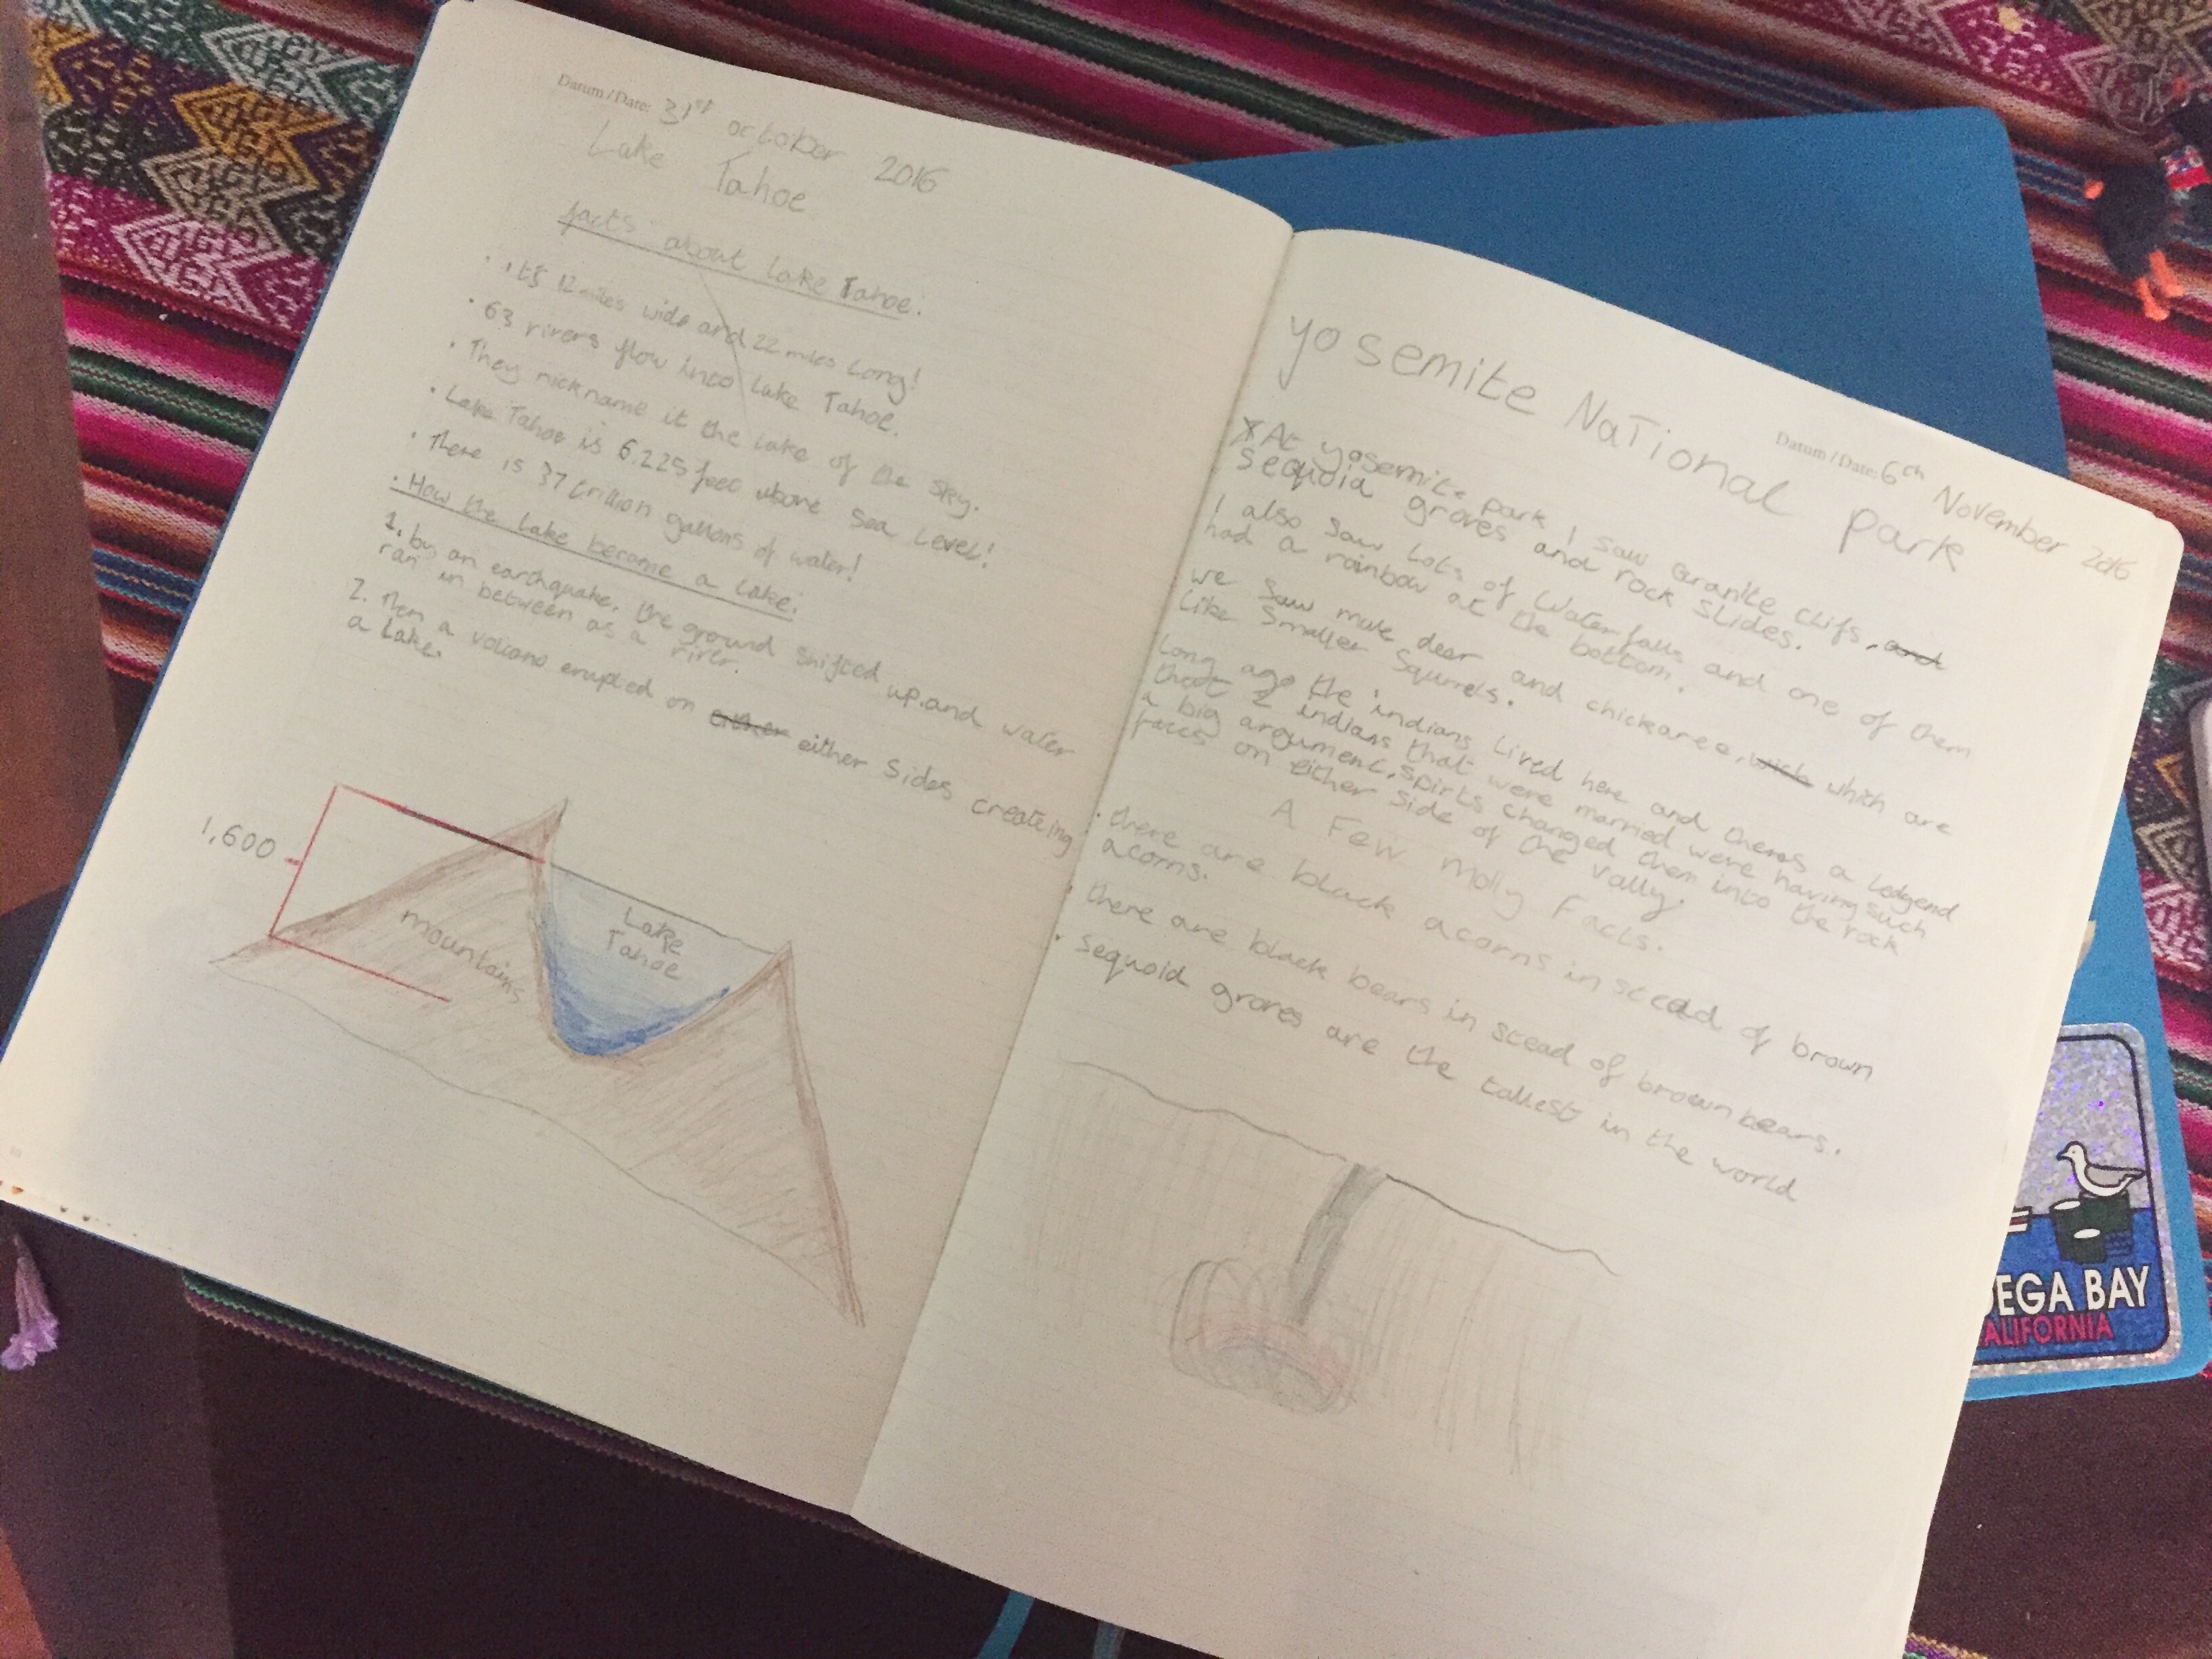 Datum / Date: 31st october 2016
Lake Tahoe
facts about Lake Tahoe.
· its 12 miles wide and 22 miles Long!
· 63 rivers flow into Lake Tahoe.
· They nickname it the Lake of the sky.
· Lake Tahoe is 6.225 feet above sea Level!
· There is 37 trillion gallons of water!
· How the Lake became a Lake:
1. by an earthquake. the ground shifted up.and water
ran in between as a river.
2. then a volcano erupted on either either Sides createing
a Lake.
1,600
mountains
Lake
Tahoe
Datum / Date: 6th November 2016
yosemite National park
At yosemite park I saw Granite clifs, and
sequoia groves and rock slides.
I also saw Lots of Waterfalls and one of them
had a rainbow at the bottom.
we saw mule deer and chickaree, wich which are
Like Smaller Squirrels.
Long ago the indians Lived here and theres a Ledgend
that 2 indians that were married were having such
a big argument, spirts changed them into the rock
faces on either side of the vally.
A Few Molly Facts.
· there are black acorns in stead of brown
acorns.
· there are black bears in stead of brown bears.
· sequoid groves are the tallest in the world
EGA BAY
ALIFORNIA